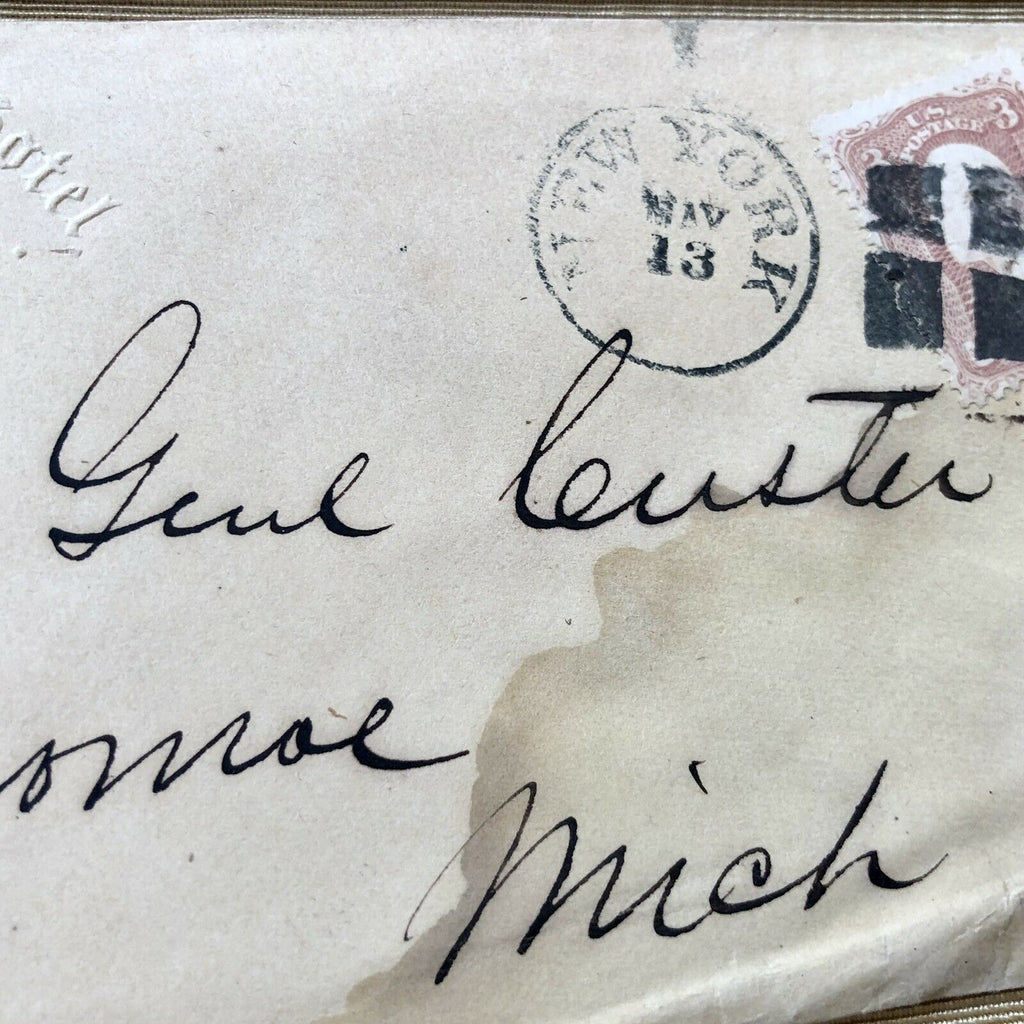 hotel,
NEW YORK
MAY
13
3 U.S. 3
POSTAGE
Genl Custer
onroe
Mich